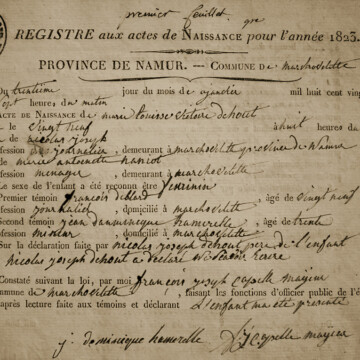 premier feuillet
REGISTRE aux actes de NAISSANCE pour l'année 1823.
PROVINCE DE NAMUR. — COMMUNE de marchovelette
Du trentième jour du mois de mil huit cent vingt
sept heures du matin
ACTE DE NAISSANCE de marie Louise dehout
le vingt neuf à huit heures du
de nicolas joseph
fession de journalier, demeurant à marchovelette province de Namur
de marie antoinette haniot
fession menager, demeurant à marchovelette
Le sexe de l'enfant a été reconnu être feminin
Premier témoin françois, âgé de vingt neuf
fession journalier, domicilié à marchovelette
econd témoin jean dominique hamerelle, âgé de trente
fession, domicilié à marchovelette
Sur la déclaration faite par nicolas joseph dehout pere de l'enfant
nicolas joseph dehout a declare ne savoir
Constaté suivant la loi, par moi françois joseph Capelle maÿeur
mmune de marchovelette, faisant les fonctions d'officier public de l'é
après lecture faite aux témoins et déclarant L'enfant ma eté presenté
j dominique hamerelle fj Capelle maÿeur